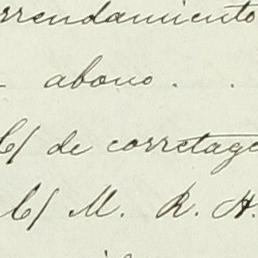 rrendamiento
abono.
C/ de corretage
C/ M. R. H.